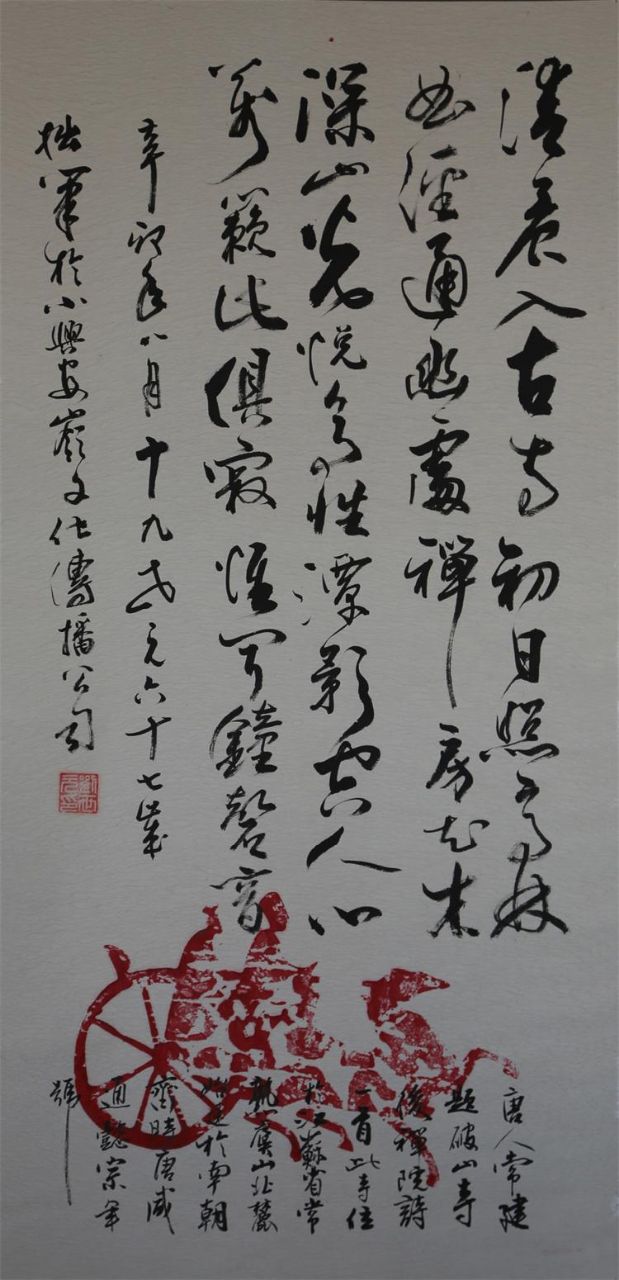 清晨入古寺初日照高林
曲徑通幽處禪房花木
深山光悦鳥性潭影空人心
萬籟此俱寂惟聞鐘磬音
辛卯年八月十九元六十七歲
拙筆於小興安嶺文化傳播公司
唐人常建
題破山寺
後禪院詩
一首此寺位
於江蘇省常
熟虞山北麓
始建於南朝
齊時唐咸
通懿宗年
號